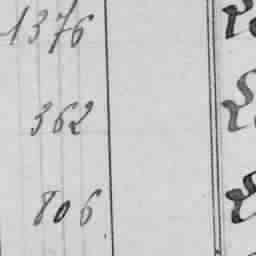 1376
362
806